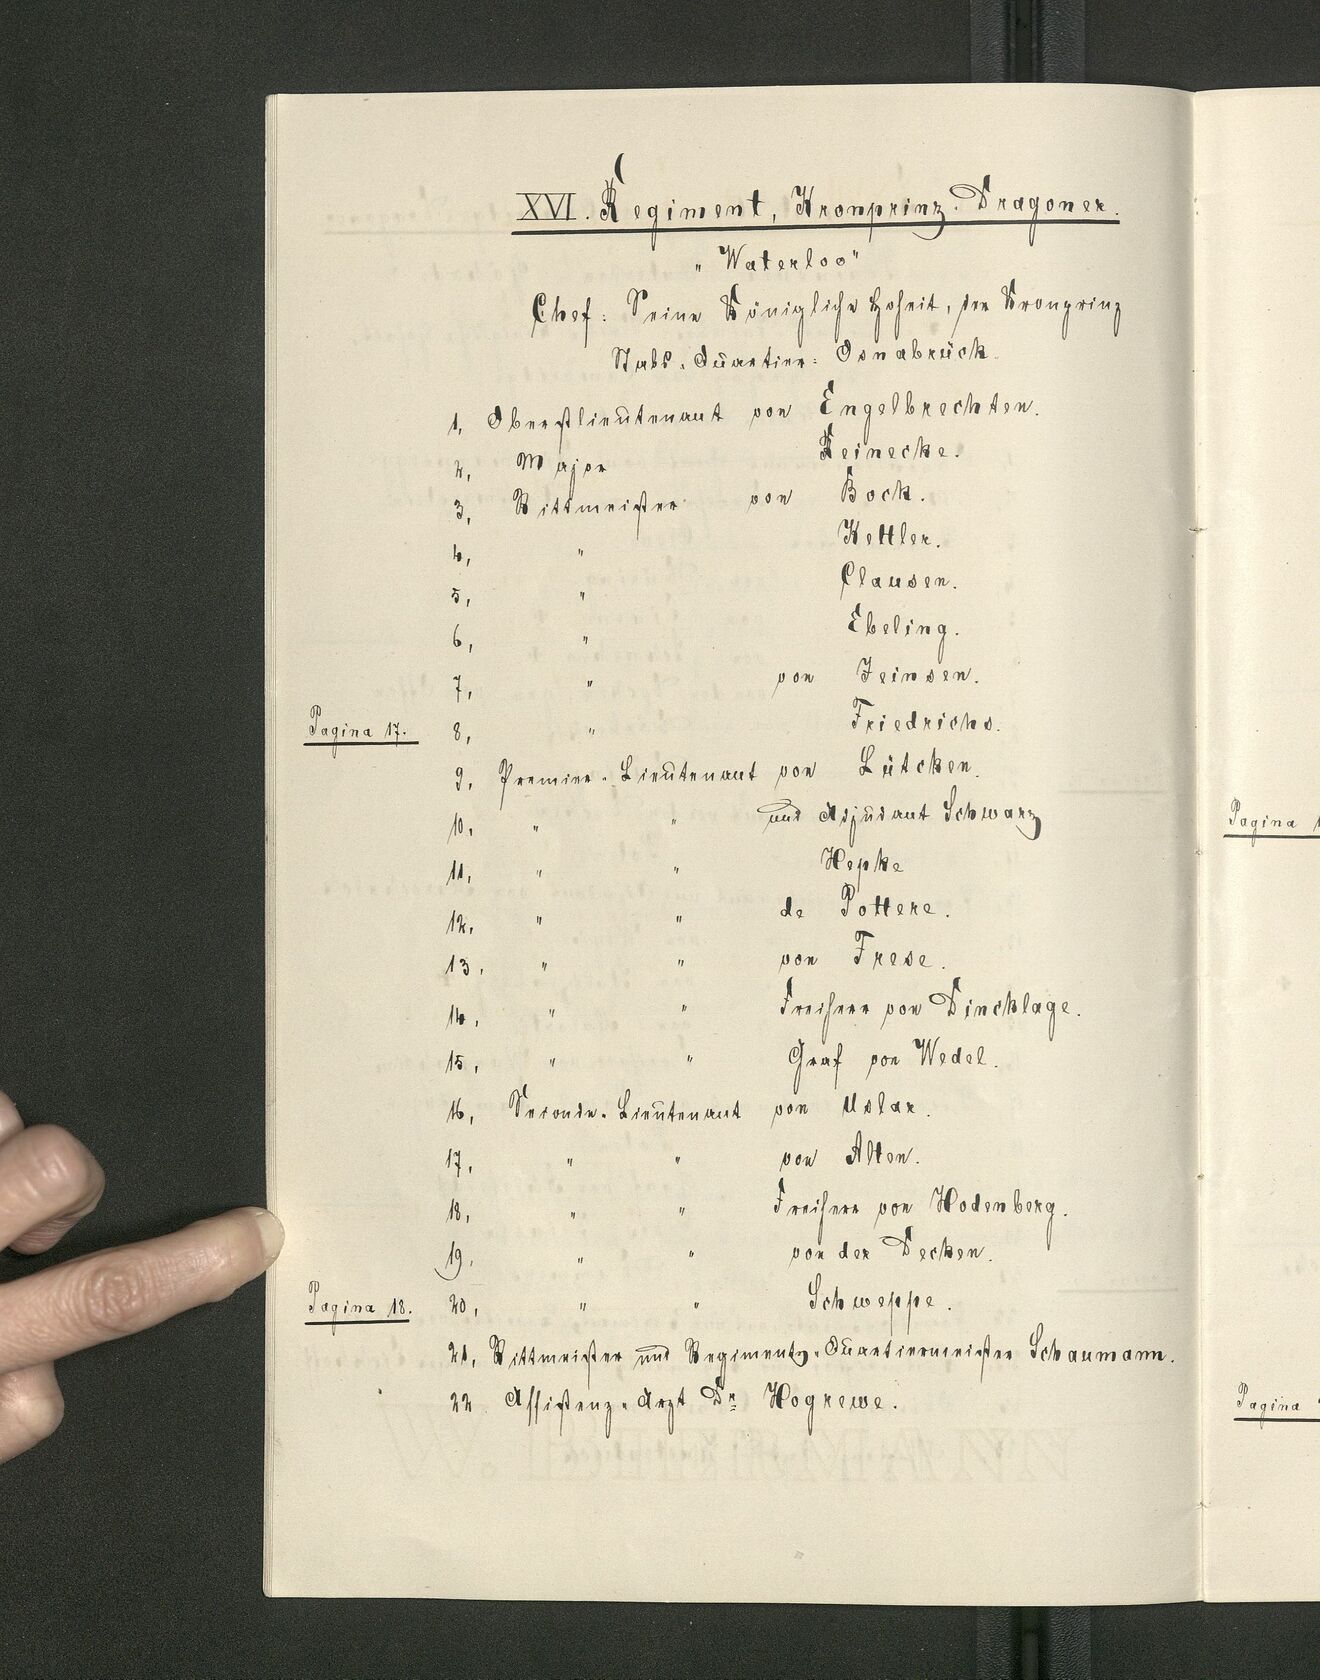 XVI. Regiment, Kronprinz-Dragoner.
„Waterloo"
Chef: Seine Königliche Hoheit, der Kronprinz
Stabs-Quartier: Osnabrück.
1, Oberstlieutenant von Engelbrechten.
2, Major Reinecke.
3, Rittmeister von Bock.
4, " Kettler.
5, " Clausen.
6, " Ebeling.
7, " von Jeinsen.
Pagina 17. 8, " Friedrichs.
9, Premier-Lieutenant von Lütcken.
10, " " und Adjudant Schwarz
11, " " Hepke
12, " " de Pottere.
13, " " von Frese.
14, " " Freiherr von Dincklage.
15, " " Graf von Wedel.
16, Seconde-Lieutenant von Uslar.
17, " " von Alten.
18, " " Freiherr von Hodenberg.
19, " " von der Decken.
Pagina 18. 20, " " Schweppe.
21, Rittmeister und Regiments-Quartiermeister Schaumann.
22 Assistenz-Arzt Dr. Hogrewe.
Pagina 1
Pagina